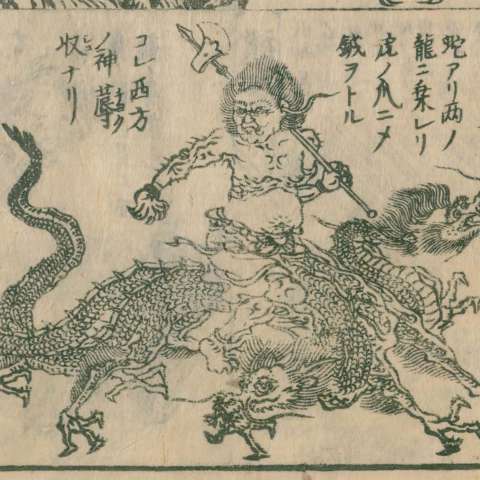 蛇アリ両ノ
龍ニ乗レリ
虎ノ爪ニメ
鉞ヲトル
コレ西方
ノ神蓐
収ナリ